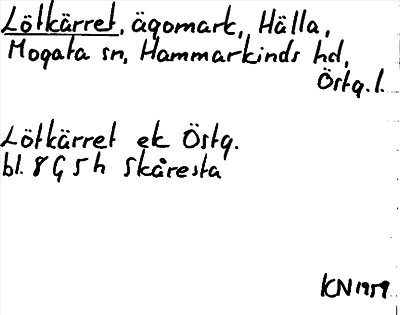 Lötkärret, ägomark, Hälla,
Mogata sn, Hammarkinds hd,
Östg. l.
Lötkärret ek Östg.
bl. 8 G 5 h Skåresta
KN 1959